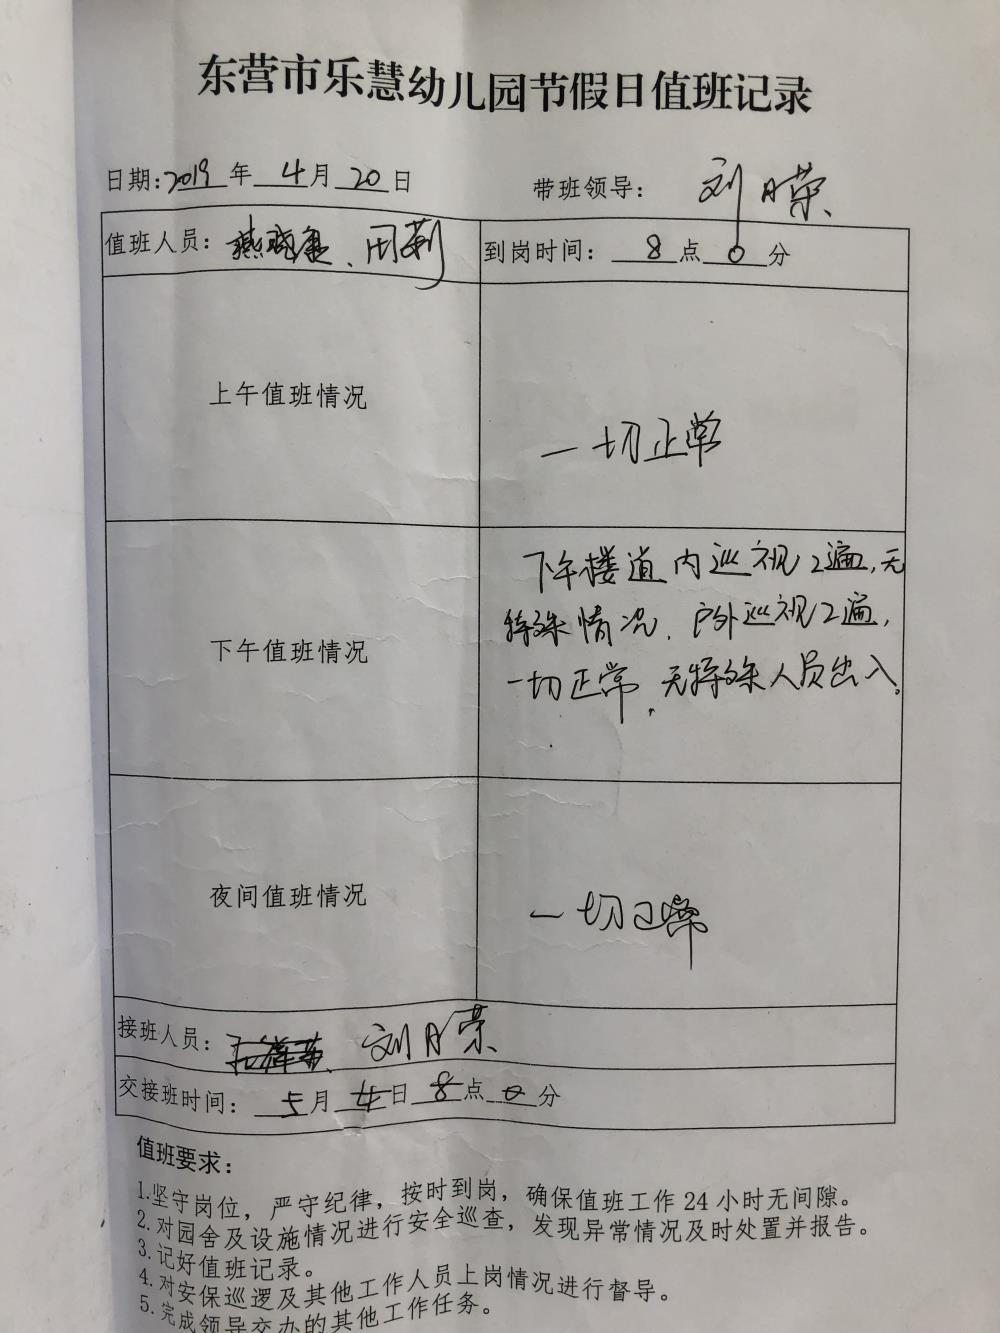 东营市乐慧幼儿园节假日值班记录
日期:2019年4月20日 带班领导: 刘月荣
值班人员: 燕 、周莉 到岗时间: 8点0分
上午值班情况 一切正常
下午楼道内巡视2遍,无
特殊情况,户外巡视2遍,
下午值班情况 一切正常,无特殊人员出入。
夜间值班情况 一切正常
接班人员: 刘月荣
交接班时间: 5月4日8点0分
值班要求:
1.坚守岗位,严守纪律,按时到岗,确保值班工作24小时无间隙。
2.对园舍及设施情况进行安全巡查,发现异常情况及时处置并报告。
3.记好值班记录。
4.对安保巡逻及其他工作人员上岗情况进行督导。
5.完成领导交办的其他工作任务。